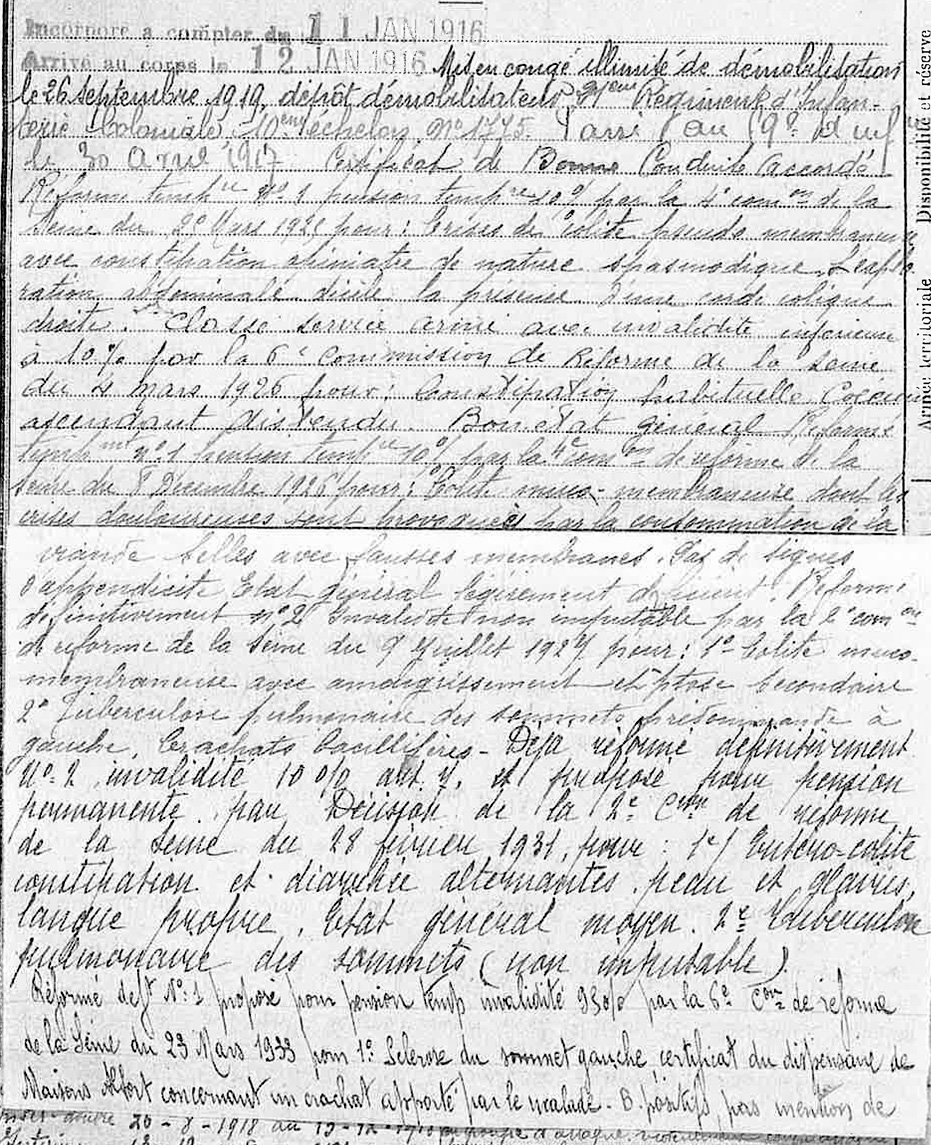 Incorporé à compter du 11 JAN 1916
Arrivé au corps le 12 JAN 1916 Mis en congé illimité de démobilisation
le 26 septembre 1919, dépôt démobilisateur 21eme Régiment d'Infan-
terie Coloniale 10eme échelon, No 1775. Passé au
le 30 avril 1917 Certificat de Bonne Conduite accordé
Réformé tempre No 1 pension tempre 10% par la com on de la
Seine du Mars 1925 pour: Crises de colite pseudo membraneuse
avec constipation opiniâtre de nature spasmodique. L'explo
ration abdominale décèle la présence d'une corde colique
droite. Classé service armé avec invalidité inférieure
à 10% par la 6e Commission de Réforme de la Seine
du 4 mars 1926 pour: Constipation habituelle Coecum
ascendant distendu. Bon état général Réformé
tempmt no 1 pension tempre 10% par la com on de réforme de la
Seine du 8 Décembre 1926 pour: Colite muco-membraneuse dont les
crises douloureuses sont provoquées par la consommation de la
viande Selles avec fausses membranes. Pas de signes
d'appendicite Etat général légèrement déficient. Réformé
définitivement no 2 Invalidité non imputable par la 2e com on
de réforme de la Seine du 9 Juillet 1927 pour: 1o Colite muco-
membraneuse avec amaigrissement et ptose secondaire
2o Tuberculose pulmonaire des sommets prédominante à
gauche. Crachats bacillifères - Déjà réformé définitivement
No 2, invalidité 10 0/0 et proposé pour pension
permanente par Décision de la 2e Con de réforme
de la Seine du 28 février 1931, pour: 1o/ Entéro-colite
constipation et diarrhée alternantes peau et glaires,
langue propre. Etat général moyen. 2o Tuberculose
pulmonaire des sommets (non imputable).
Réformé deft No 1 proposé pour pension temp invalidité 95% par la 6e Con de réforme
de la Seine du 23 Mars 1933 pour 1o Sclérose du sommet gauche, certificat du dispensaire de
Maisons Alfort concernant un crachat apporté par le malade - 6 positifs pas mention de
20-8-1918 au groupe d'attaque
Armée territoriale Disponibilité et réserve